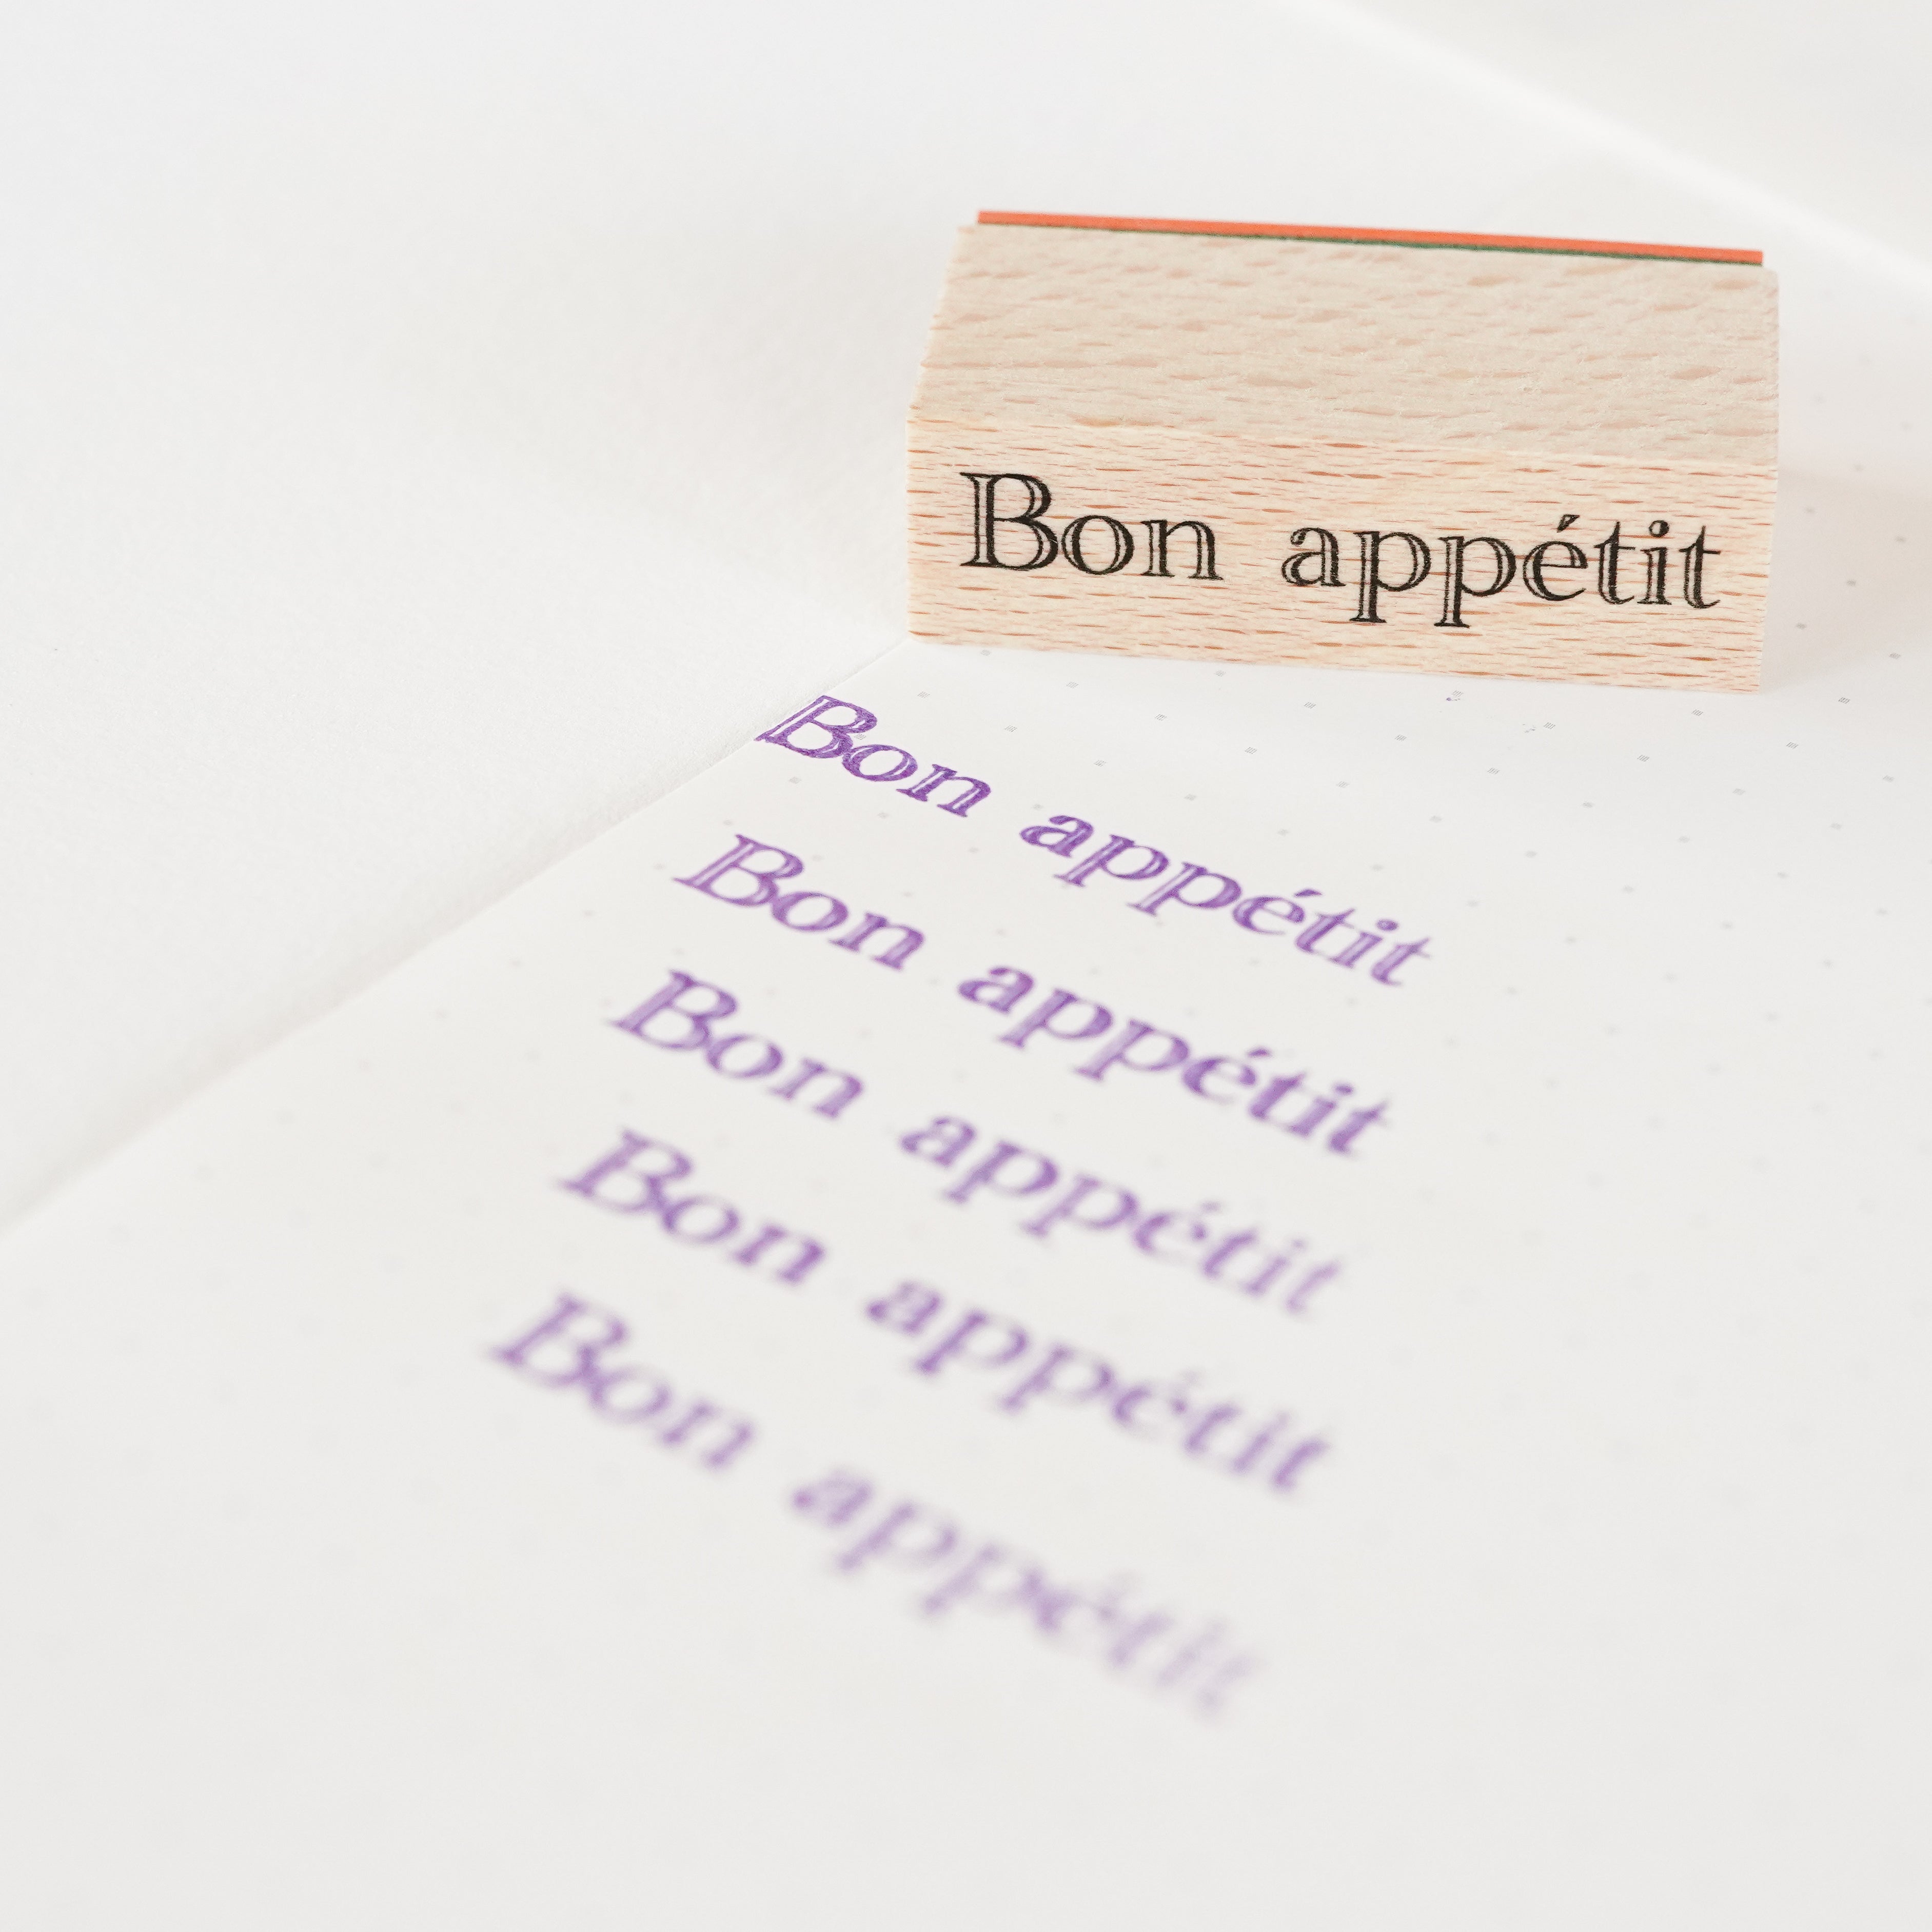 Bon appétit
Bon appétit
Bon appétit
Bon appétit
Bon appétit
Bon appétit